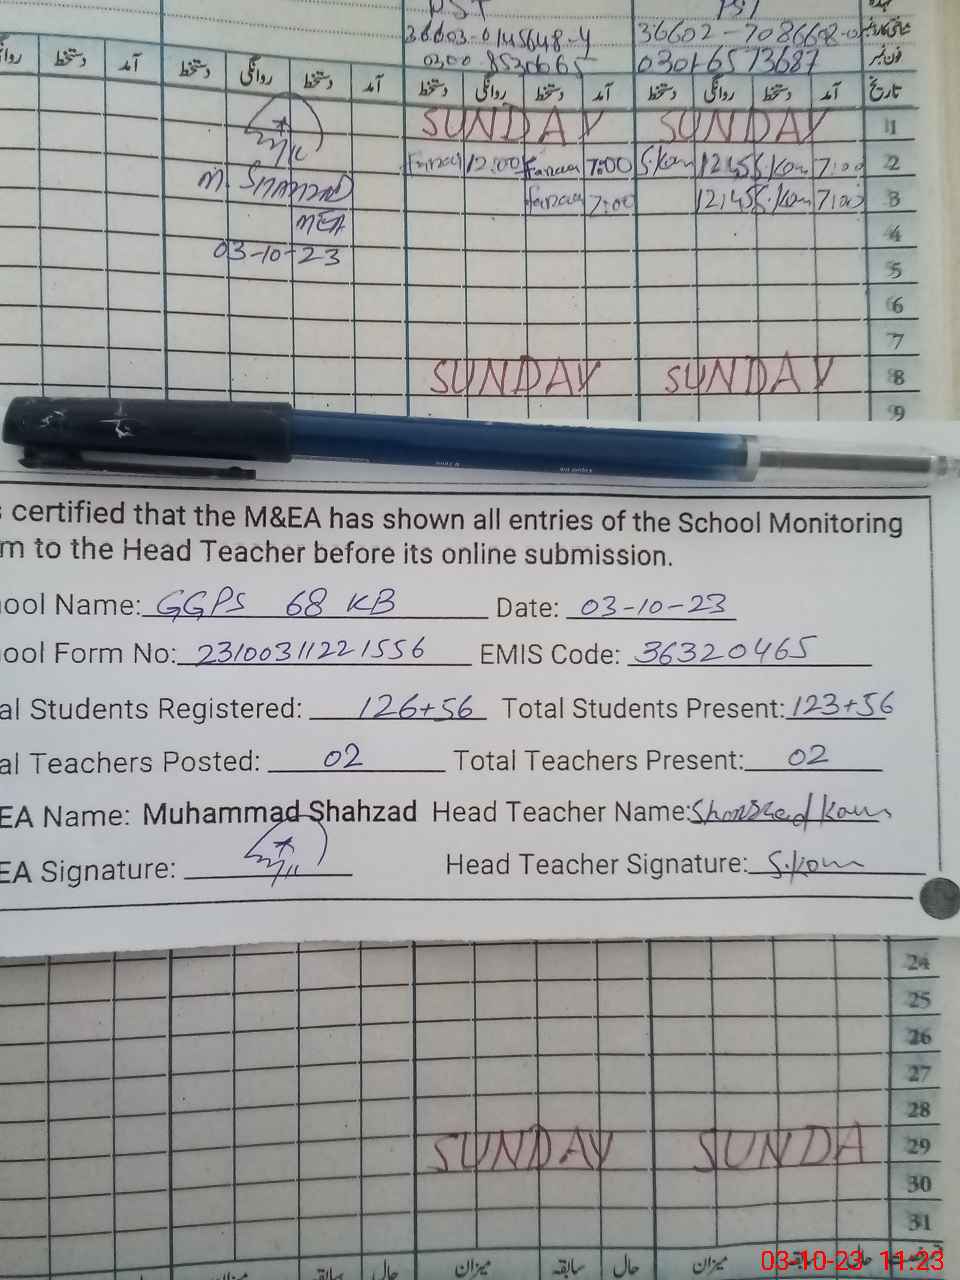 PST PST
36603-0145648-4 36602-7086608-0
0300 8530665 03016573687 فون نمبر
دستخط آمد دستخط روانگی دستخط آمد دستخط روانگی دستخط آمد دستخط روانگی دستخط آمد تاریخ
SUNDAY SUNDAY 1
12:00 7:00 S.Kou 12:45 S.Kou 7:00 2
M. SHAHZAD 7:00 12:45 S.Kou 7:00 3
MEA 4
03-10-23 5
6
7
SUNDAY SUNDAY 8
9
certified that the M&EA has shown all entries of the School Monitoring
m to the Head Teacher before its online submission.
ool Name: GGPS 68 KB Date: 03-10-23
ool Form No: 23100311221556 EMIS Code: 36320465
al Students Registered: 126+56 Total Students Present: 123+56
al Teachers Posted: 02 Total Teachers Present: 02
EA Name: Muhammad Shahzad Head Teacher Name:
EA Signature: Head Teacher Signature: S.Kou
24
25
26
27
28
SUNDAY SUNDA 29
30
31
میزان سابقہ حال میزان سابقہ حال
03-10-23 11:23